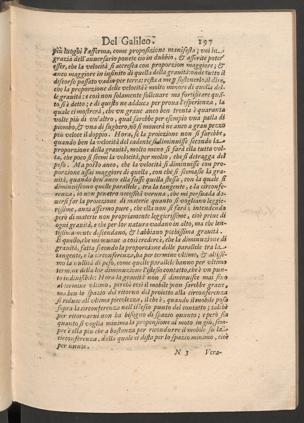 Del Galileo. 197
più luoghi l'afferma, come proposizione manifesta; voi in
grazia dell'auuersario ponete ciò in dubbio, & asserite poter
esser, che la velocità si accresca con proporzion maggiore; &
anco maggiore in infinito di quella della grauità: onde tutto il
discorso passato vadia per terra: resta a me per sostenerlo il di-
re, che la proporzione delle velocità è molto minore di quella del-
le grauità; e così non solamente solleuare ma fortificare quan-
to si è detto; e di questo ne adduco per proua l'esperienza, la
quale ci mostrerà, che vn graue anco ben trenta, e quaranta
volte più di vn'altro, qual sarebbe per esempio vna palla di
piombo, & vna di sughero, nò si mouerà ne anco a gran pezzo
più veloce il doppio. Hora, se la proiezione non si farebbe,
quando ben la velocità del cadente si diminuisse secondo la
proporzione della grauità, molto meno si farà ella tutta vol-
ta, che poco si scemi la velocità, per molto, che si detragga del
peso. Ma posto anco, che la velocità si diminuisse con pro-
porzione assai maggiore di quella, con che si scemasse la gra-
uità, quando ben anco ella fusse quella stessa, con la quale si
diminuiscono quelle parallele, tra la tangente, e la circonfe-
renza, io non penetro necessità veruna, che mi persuada doue-
rsi far la proiezione di materie quanto si vogliano leggie-
rissime, anzi affermo pure, che ella non si farà; intendendo
però di materie non propriamente leggierissime, cioè priue di
ogni grauità, e che per lor natura vadano in alto, ma che len-
tissimamente discendano, & habbiano pochissima grauità.
E quello, che mi muoue a così credere, è che la diminuzione di
grauità, fatta secondo la proporzione delle parallele tra la
tangente, e la circonferenza, ha per termine vltimo, & altissi-
mo la nullità di peso, come quelle parallele hanno per vltimo
termine della lor diminuzione l'istesso contatto, che è vn pun-
to indiuisibile: Hora la grauità non si diminuisce mai sino
al termine vltimo, perche così il mobile non sarebbe graue,
ma ben lo spazio del ritorno del proietto alla circonferenza
si riduce all'vltima piccolezza, il che è, quando il mobile posa
sopra la circonferenza nell'istesso punto del contatto; talchè
per ritornarui non ha bisogno di spazio quanto; e però sia
quanto si voglia minima la propensione al moto in giù, sem-
pre è ella più che a bastanza per ricondurre il mobile su la
circonferenza, dalla quale ei dista per lo spazio minimo, cioè
per niente.
N 3 Vera-